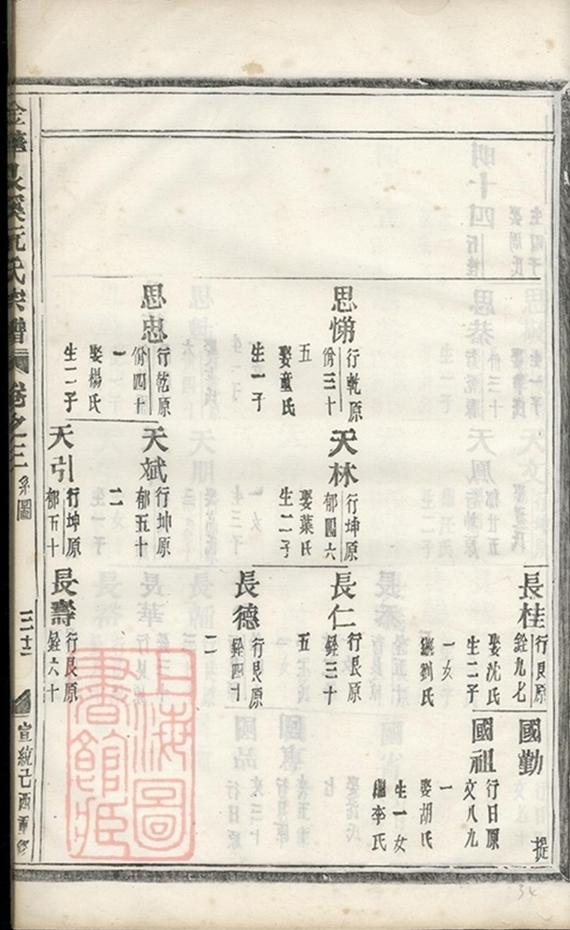 長桂
行艮原
銓九七
娶沈氏
生二子
一女
繼劉氏
國勤
國祖
行日原
文八九
一
娶胡氏
生一女
繼李氏
提
思悌
行乾原
份三十
五
娶童氏
生一子
天林
行坤原
郁四六
娶葉氏
生二子
長仁
行艮原
銓三十
五
長德
行艮原
銓四十
二
思忠
行乾原
份四十
一
娶楊氏
生二子
天斌
行坤原
郁五十
二
天引
行坤原
郁五十
長壽
行艮原
銓六十
阮氏宗譜
卷之三
系圖
宣統己酉重修
上海圖書館藏
34